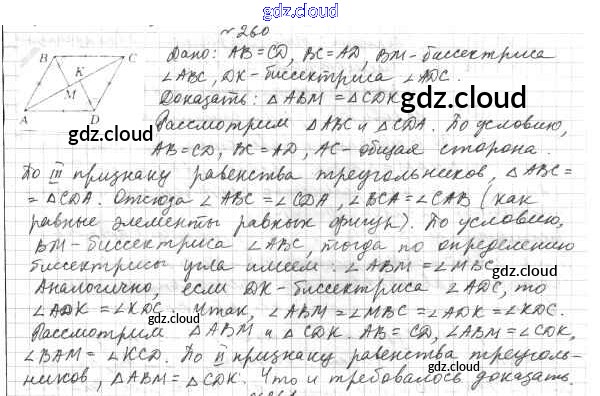 gdz.cloud
№260
Дано: AB=CD, BC=AD, BM-биссектриса
∠ABC, DK-биссектриса ∠ADC.
Доказать: △ABM=△CDK
gdz.cloud
Рассмотрим △ABC и △CDA. По условию,
AB=CD, BC=AD, AC-общая сторона.
B C K M A D
gdz.cloud
gdz.cloud
По III признаку равенства треугольников, △ABC=
=△CDA. Отсюда ∠ABC=∠CDA, ∠BCA=∠CAB (как
равные элементы равных фигур). По условию,
BM-биссектриса ∠ABC, тогда по определению
биссектрисы угла имеем: ∠ABM=∠MBC.
gdz.cloud
Аналогично, если DK-биссектриса ∠ADC, то
∠ADK=∠KDC. Итак, ∠ABM=∠MBC=∠ADK=∠KDC.
gdz.cloud
Рассмотрим △ABM и △CDK. AB=CD, ∠ABM=∠CDK,
∠BAM=∠KCD. По II признаку равенства треуголь-
ников, △ABM=△CDK. Что и требовалось доказать.
gdz.cloud